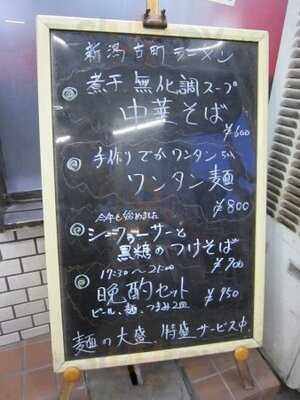 新潟古町ラーメン
煮干 無化調スープ
中華そば
¥600
手作りでかワンタン5ヶ
ワンタン麺
¥800
今年も始めました
シークヮーサーと
黒糖のつけそば
¥900
17:30〜21:00
晩酌セット
¥950
ビール、麺、つまみ2皿
麺の大盛、特盛サービス中